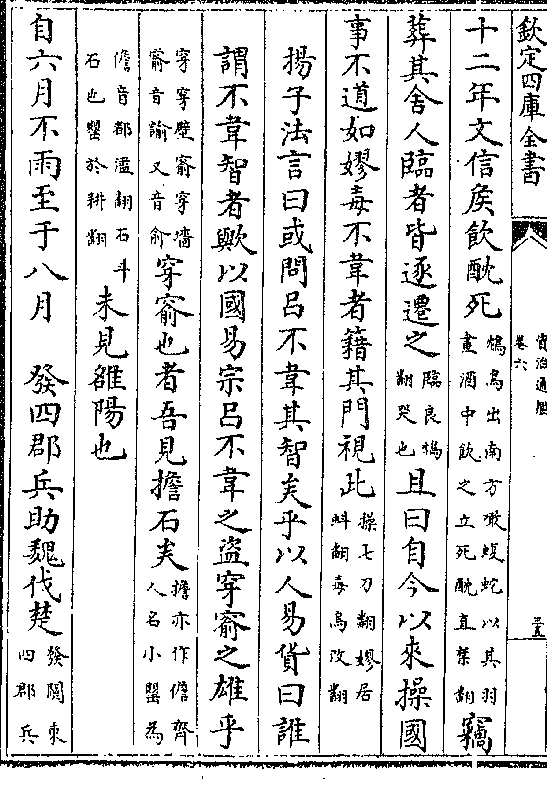 欽定四庫全書
資治通鑑
卷六
十二年文信矦飲酖死鴆鳥出南方噉蝮蛇以其羽畫酒中飲之立死酖直禁翻竊
葬其舍人臨者皆逐遷之臨良鴆翻哭也且曰自今以來操國
事不道如嫪毒不韋者籍其門視此操七刀翻嫪居蚪翻毒烏改翻
揚子法言曰或問吕不韋其智矣乎以人易貨曰誰
謂不韋智者歟以國易宗吕不韋之盜穿窬之雄乎
穿穿壁窬穿墻窬音諭又音俞穿窬也者吾見擔石矣擔亦作儋齊人名小罌為
儋音都濫翻石斗石也罌於耕翻未見雒陽也
自六月不雨至于八月　發四郡兵助魏伐楚發關東四郡兵